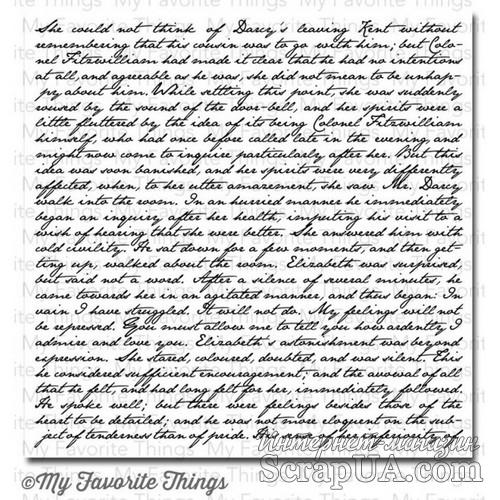 She could not think of Darcy's leaving Kent without
remembering that his cousin was to go with him; but Colo-
nel Fitzwilliam had made it clear that he had no intentions
at all, and agreeable as he was, she did not mean to be unhap-
py about him. While settling this point, she was suddenly
roused by the sound of the door-bell, and her spirits were a
little fluttered by the idea of its being Colonel Fitzwilliam
himself, who had once before called late in the evening, and
might now come to inquire particularly after her. But this
idea was soon banished, and her spirits were very differently
affected, when, to her utter amazement, she saw Mr. Darcy
walk into the room. In an hurried manner he immediately
began an inquiry after her health, imputing his visit to a
wish of hearing that she were better. She answered him with
cold civility. He sat down for a few moments, and then get-
ting up, walked about the room. Elizabeth was surprised,
but said not a word. After a silence of several minutes, he
came towards her in an agitated manner, and thus began: In
vain I have struggled. It will not do. My feelings will not
be repressed. You must allow me to tell you how ardently I
admire and love you. Elizabeth's astonishment was beyond
expression. She stared, coloured, doubted, and was silent. This
he considered sufficient encouragement; and the avowal of all
that he felt, and had long felt for her, immediately followed.
He spoke well; but there were feelings besides those of the
heart to be detailed; and he was not more eloquent on the sub-
ject of tenderness than of pride. His
Интернет-магазин
ScrapUA.com
©My Favorite Things